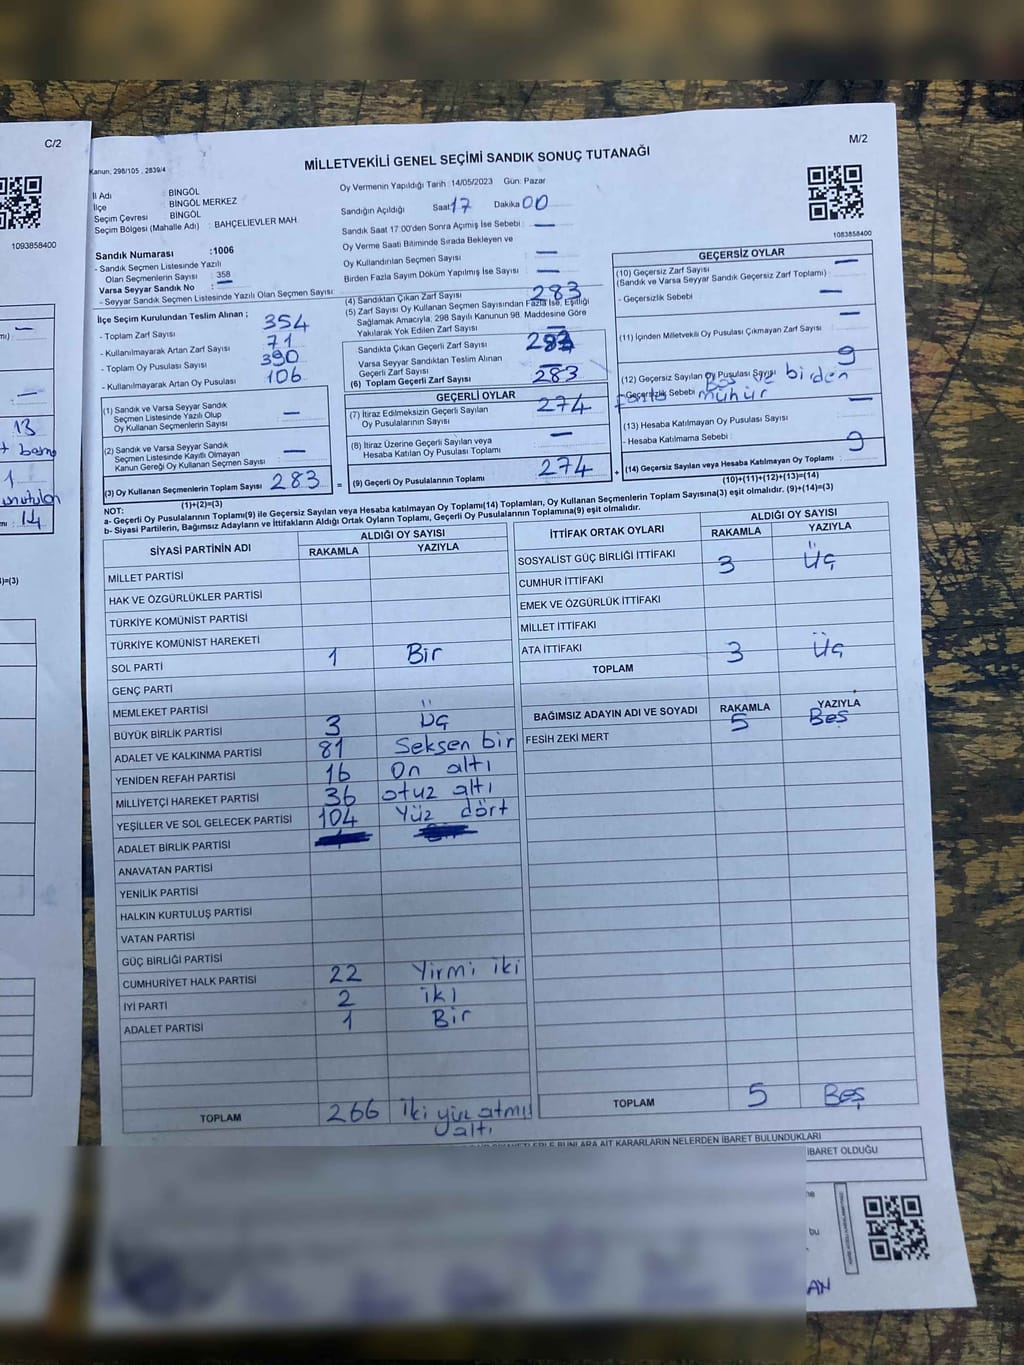 C/2
1093858400
13
1
14
M/2
Kanun: 298/105 , 2839/4
MİLLETVEKİLİ GENEL SEÇİMİ SANDIK SONUÇ TUTANAĞI
1083858400
İl Adı : BİNGÖL
İlçe : BİNGÖL MERKEZ
Seçim Çevresi : BİNGÖL
Seçim Bölgesi (Mahalle Adı) : BAHÇELİEVLER MAH
Sandık Numarası :1006
- Sandık Seçmen Listesinde Yazılı
Olan Seçmenlerin Sayısı : 358
Varsa Seyyar Sandık No : —
- Seyyar Sandık Seçmen Listesinde Yazılı Olan Seçmen Sayısı:
Oy Vermenin Yapıldığı Tarih : 14/05/2023 Gün: Pazar
Sandığın Açıldığı Saat: 17 Dakika: 00
Sandık Saat 17.00'den Sonra Açılmış İse Sebebi : —
Oy Verme Saati Bitiminde Sırada Bekleyen ve
Oy Kullandırılan Seçmen Sayısı —
Birden Fazla Sayım Döküm Yapılmış İse Sayısı —
İlçe Seçim Kurulundan Teslim Alınan ;
- Toplam Zarf Sayısı 354
- Kullanılmayarak Artan Zarf Sayısı 71
- Toplam Oy Pusulası Sayısı 390
- Kullanılmayarak Artan Oy Pusulası 106
(1) Sandık ve Varsa Seyyar Sandık
Seçmen Listesinde Yazılı Olup
Oy Kullanan Seçmenlerin Sayısı —
(2) Sandık ve Varsa Seyyar Sandık
Seçmen Listesinde Kayıtlı Olmayan
Kanun Gereği Oy Kullanan Seçmen Sayısı —
(3) Oy Kullanan Seçmenlerin Toplam Sayısı 283
(1)+(2)=(3)
(4) Sandıktan Çıkan Zarf Sayısı 283
(5) Zarf Sayısı Oy Kullanan Seçmen Sayısından Fazla İse, Eşitliği
Sağlamak Amacıyla, 298 Sayılı Kanunun 98. Maddesine Göre
Yakılarak Yok Edilen Zarf Sayısı —
Sandıkta Çıkan Geçerli Zarf Sayısı 283
Varsa Seyyar Sandıktan Teslim Alınan
Geçerli Zarf Sayısı —
(6) Toplam Geçerli Zarf Sayısı 283
GEÇERLİ OYLAR
(7) İtiraz Edilmeksizin Geçerli Sayılan
Oy Pusulalarının Sayısı 274
(8) İtiraz Üzerine Geçerli Sayılan veya
Hesaba Katılan Oy Pusulası Toplamı —
= (9) Geçerli Oy Pusulalarının Toplamı 274 +
GEÇERSİZ OYLAR
(10) Geçersiz Zarf Sayısı —
(Sandık ve Varsa Seyyar Sandık Geçersiz Zarf Toplamı)
- Geçersizlik Sebebi —
(11) İçinden Milletvekili Oy Pusulası Çıkmayan Zarf Sayısı —
(12) Geçersiz Sayılan Oy Pusulası Sayısı 9
- Geçersizlik Sebebi Boş ve birden
fazla mühür
(13) Hesaba Katılmayan Oy Pusulası Sayısı —
- Hesaba Katılmama Sebebi :
(14) Geçersiz Sayılan veya Hesaba Katılmayan Oy Toplamı 9
(10)+(11)+(12)+(13)=(14)
NOT:
a- Geçerli Oy Pusulalarının Toplamı(9) ile Geçersiz Sayılan veya Hesaba katılmayan Oy Toplamı(14) Toplamları, Oy Kullanan Seçmenlerin Toplam Sayısına(3) eşit olmalıdır. (9)+(14)=(3)
b- Siyasi Partilerin, Bağımsız Adayların ve İttifakların Aldığı Ortak Oyların Toplamı, Geçerli Oy Pusulalarının Toplamına(9) eşit olmalıdır.
SİYASİ PARTİNİN ADI ALDIĞI OY SAYISI
RAKAMLA YAZIYLA
MİLLET PARTİSİ
HAK VE ÖZGÜRLÜKLER PARTİSİ
TÜRKİYE KOMÜNİST PARTİSİ
TÜRKİYE KOMÜNİST HAREKETİ
SOL PARTİ 1 Bir
GENÇ PARTİ
MEMLEKET PARTİSİ
BÜYÜK BİRLİK PARTİSİ 3 Üç
ADALET VE KALKINMA PARTİSİ 81 Seksen bir
YENİDEN REFAH PARTİSİ 16 On altı
MİLLİYETÇİ HAREKET PARTİSİ 36 otuz altı
YEŞİLLER VE SOL GELECEK PARTİSİ 104 Yüz dört
ADALET BİRLİK PARTİSİ
ANAVATAN PARTİSİ
YENİLİK PARTİSİ
HALKIN KURTULUŞ PARTİSİ
VATAN PARTİSİ
GÜÇ BİRLİĞİ PARTİSİ
CUMHURİYET HALK PARTİSİ 22 Yirmi iki
İYİ PARTİ 2 iki
ADALET PARTİSİ 1 Bir
TOPLAM 266 İki yüz atmış
altı
İTTİFAK ORTAK OYLARI ALDIĞI OY SAYISI
RAKAMLA YAZIYLA
SOSYALİST GÜÇ BİRLİĞİ İTTİFAKI
CUMHUR İTTİFAKI 3 Üç
EMEK VE ÖZGÜRLÜK İTTİFAKI
MİLLET İTTİFAKI
ATA İTTİFAKI
TOPLAM 3 Üç
BAĞIMSIZ ADAYIN ADI VE SOYADI RAKAMLA YAZIYLA
FESİH ZEKİ MERT 5 Beş
TOPLAM 5 Beş
BUNLARA AİT KARARLARIN NELERDEN İBARET BULUNDUKLARI
İBARET OLDUĞU
bu
AN